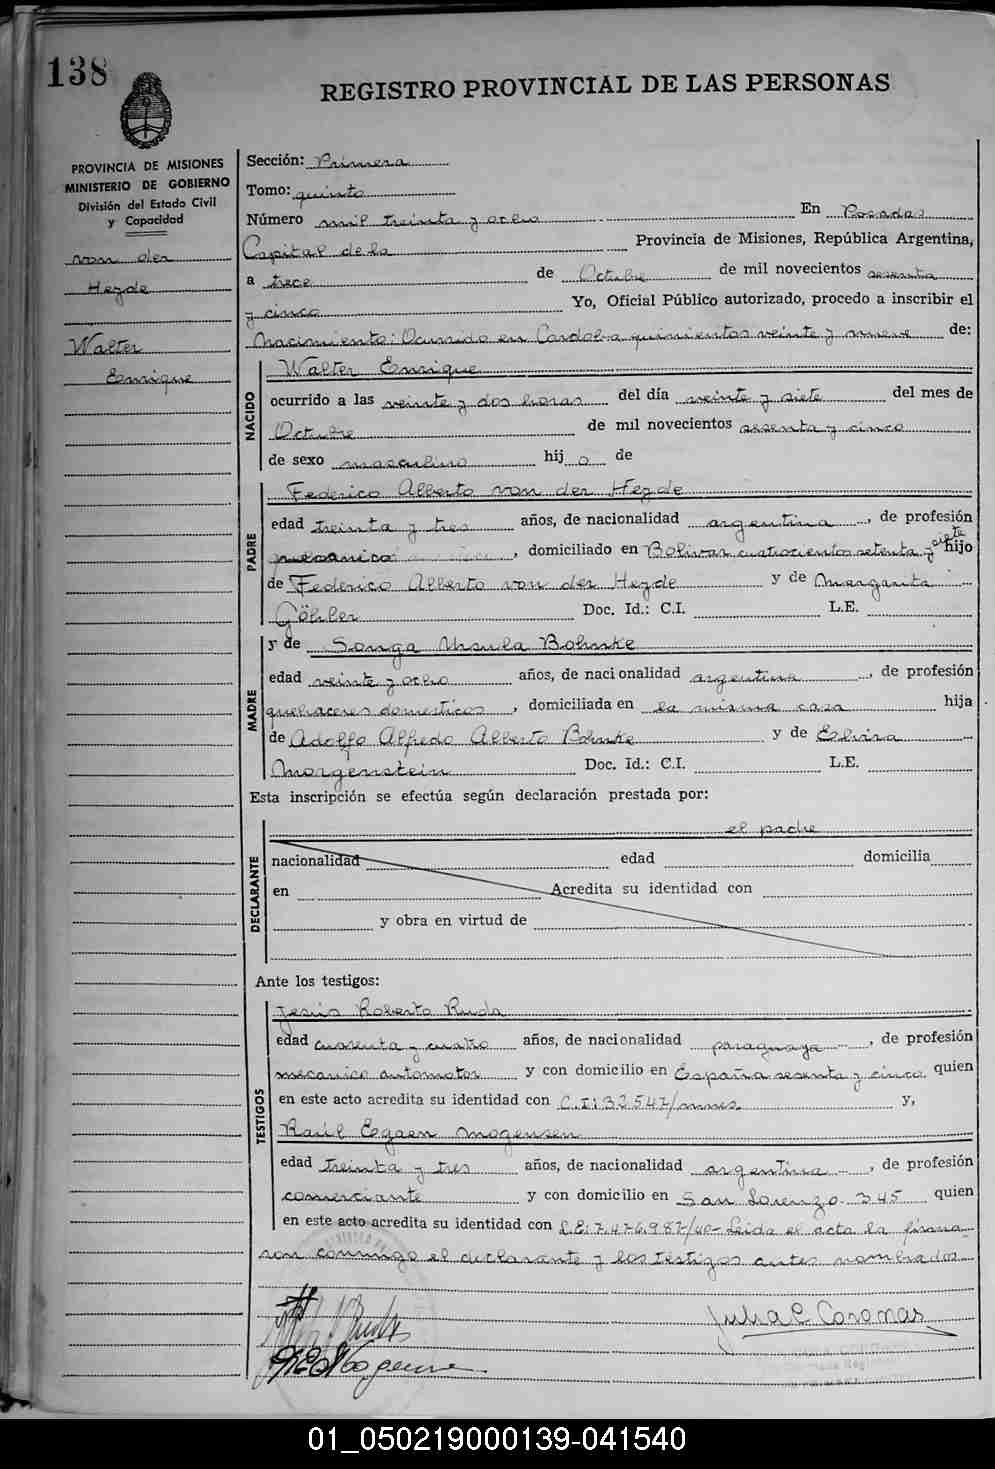 138
REGISTRO PROVINCIAL DE LAS PERSONAS
PROVINCIA DE MISIONES
MINISTERIO DE GOBIERNO
División del Estado Civil
y Capacidad
von der
Heyde
Walter
Enrique
Sección: Primera
Tomo: quinto
Número mil treinta y ocho En Posadas
Capital de la Provincia de Misiones, República Argentina,
a trece de Octubre de mil novecientos sesenta
y cinco Yo, Oficial Público autorizado, procedo a inscribir el
Nacimiento: Ocurrido en Cordoba quinientos veinte y nueve de:
NACIDO
Walter Enrique
ocurrido a las veinte y dos horas del día veinte y siete del mes de
Octubre de mil novecientos sesenta y cinco
de sexo masculino hij o de
PADRE
Federico Alberto von der Heyde
edad treinta y tres años, de nacionalidad argentina, de profesión
, domiciliado en Bolivar cuatrocientos setenta y siete hijo
de Federico Alberto von der Heyde y de Margarita
Göhler Doc. Id.: C.I. L.E.
MADRE
y de Sonya Ursula Bohnke
edad veinte y ocho años, de nacionalidad argentina, de profesión
quehaceres domesticos, domiciliada en la misma casa hija
de Adolfo Alfredo Alberto Bohnke y de Elvira
Morgenstein Doc. Id.: C.I. L.E.
Esta inscripción se efectúa según declaración prestada por:
DECLARANTE
el padre
nacionalidad edad domicilia
en Acredita su identidad con
y obra en virtud de
Ante los testigos:
TESTIGOS
Jesús Roberto Ruda
edad cuarenta y cuatro años, de nacionalidad paraguaya, de profesión
mecanico automotor y con domicilio en España sesenta y cinco quien
en este acto acredita su identidad con C.I: 32547/mnes. y,
Raúl Egaen Mogensen
edad treinta y tres años, de nacionalidad argentina, de profesión
comerciante y con domicilio en San Lorenzo 345 quien
en este acto acredita su identidad con L.E: 7.476.987/40- Leida el acta la firma
ron conmigo el declarante y los testigos antes nombrados
Julia C. Coronas
01_050219000139-041540